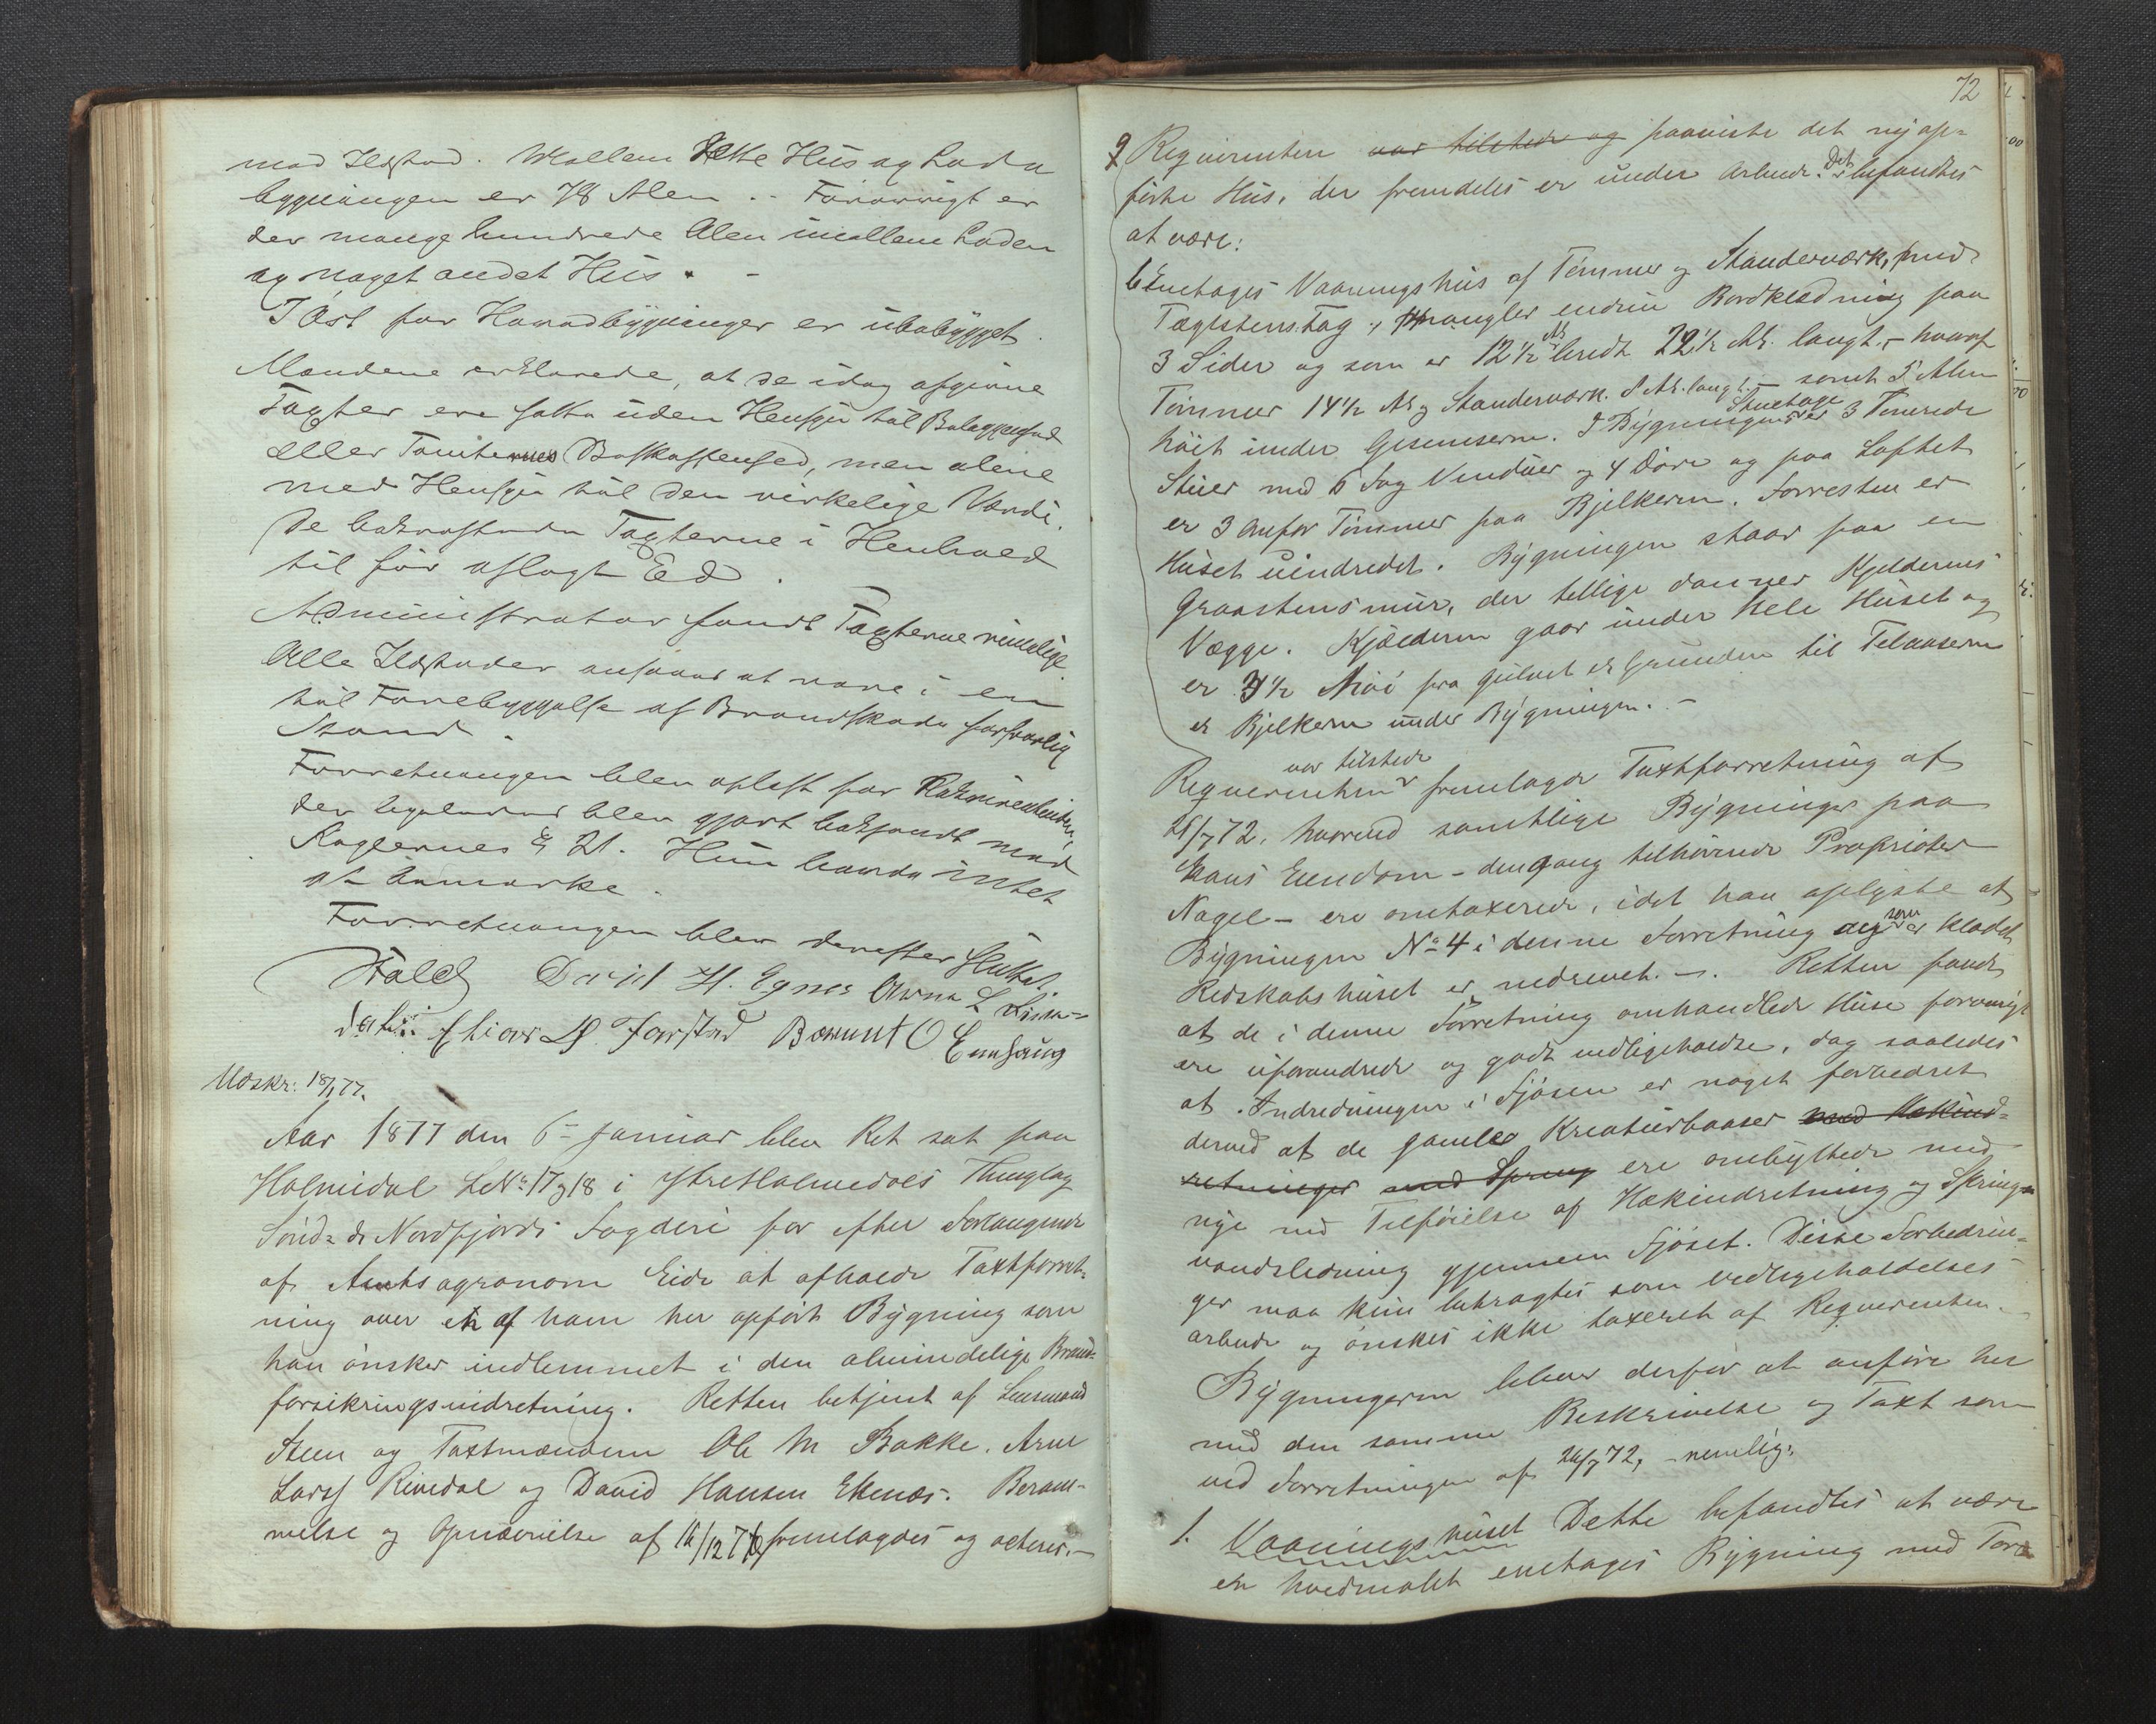 med Ildsted. Mellem dette Hus og Lade
bygningen er 78 Alen. - Forøvrigt er
der mange hundrede Alen imellem Laden
og noget andet Hus. -
I Øst for Hovedbygninger er ubebygget.
Mændene erklærede, at de idag afgivne
Taxter ere satte uden Hensyn til Beliggenhed
eller Tomternes Beskaffenhed, men alene
med Hensyn til den virkelige Værdi.
De bekræftede Taxterne i Henhold
til før aflagt Ed.
Administrator fandt Taxterne rimelige
Alle Ildsteder ansaaes at være i en
til Forebyggelse af Brandskade forsvarlig
Stand.
Forretningen blev oplæst for Rekvirentinden,
der ligeledes blev gjort bekjendt med
Reglernes § 21. Hun havde intet
at bemærke.
Forretningen blev derefter sluttet.
Fald David H. Egnes Arne L
Farstad
Udskr: 18/1 77.
Aar 1877 den 6- Januar blev Ret sat paa
Holmedal LNo: 17 og 18 i Ytreholmedals Thinglag
Sønd- & Nordfjords Fogderi for efter Forlangende
af Amtsagronom Eide at afholde Taxtforret-
ning over en af ham her opført Bygning som
han ønsker indlemmet i den almindelige Brand-
forsikringsindretning. Retten betjent af Lensmand
Steen og Taxtmændene Ole M Bakke, Arne
Larss Rivedal og David Hansen Ekenæs. Beram-
melse og Opnævnelse af 16/12 76 fremlagdes og acteres. -
72
2 Reqvirenten var tilstede og paaviste det nyop-
førte Hus, der fremdeles er under Arbeide. Det befandtes
at være:
Eenetages Vaaningshus af Tømmer og Standerværk, med
Taglstens Tag, mangler endnu Bordklædning paa
3 Sider og som er 12½ Al bredt 22½ Al. langt, - hvoraf
Tømmer 14½ Al og Standerværk 8 Al. langt - samt 5 Alen
høit under Gesimserne. I Bygningens Stuetage er 3 Tømrede
Stuer med 6 Fag Vinduer og 4 Døre og paa Loftet
er 3 Omfar Tømmer paa Bjelkerne. Forresten er
Huset uindredet. Bygningen staar paa en
Graastensmur, der tillige danner Kjelderens
Vægge. Kjælderen gaar under hele Huset og
er 3½ Al høi fra Gulvet & Grunden til Telaaserne
& Bjelkerne under Bygningen. -
Reqverenten var tilstede fremlagde Taxtforretning af
24/7 72, hvorved samtlige Bygninger paa
hans Eiendom - dengang tilhørende Proprietær
Nagel - ere omtaxerede, idet han oplyste at
Bygningen No 4 i denne Forretning som er kladet
Redskabshuset er nedrevet. -. Retten fandt
at de i denne Forretning omhandlede Huse forøvrigt
ere uforandrede og godt vedligeholdte, dog saaledes
at Indredningen i Fjøsen er noget forbedret
derved at de gamle Kreaturbaaser med Hækind-
retninger med Spring ere ombyttede med
nye med Tilføielse af Hækindretning og Spring-
vandsledning gjennem Fjøset. Disse Forbedrin-
ger maa kun betragtes som Vedligeholdelses
arbeide og ønskes ikke taxeret af Reqverenten.
Bygningerne bliver derfor at anføre her
med den samme Beskrivelse og Taxt som
ved Forretningen af 24/7 72, - nemlig:
1. Vaaningshuset Dette befandtes at være
en hvidmalet enetages Bygning med Torv